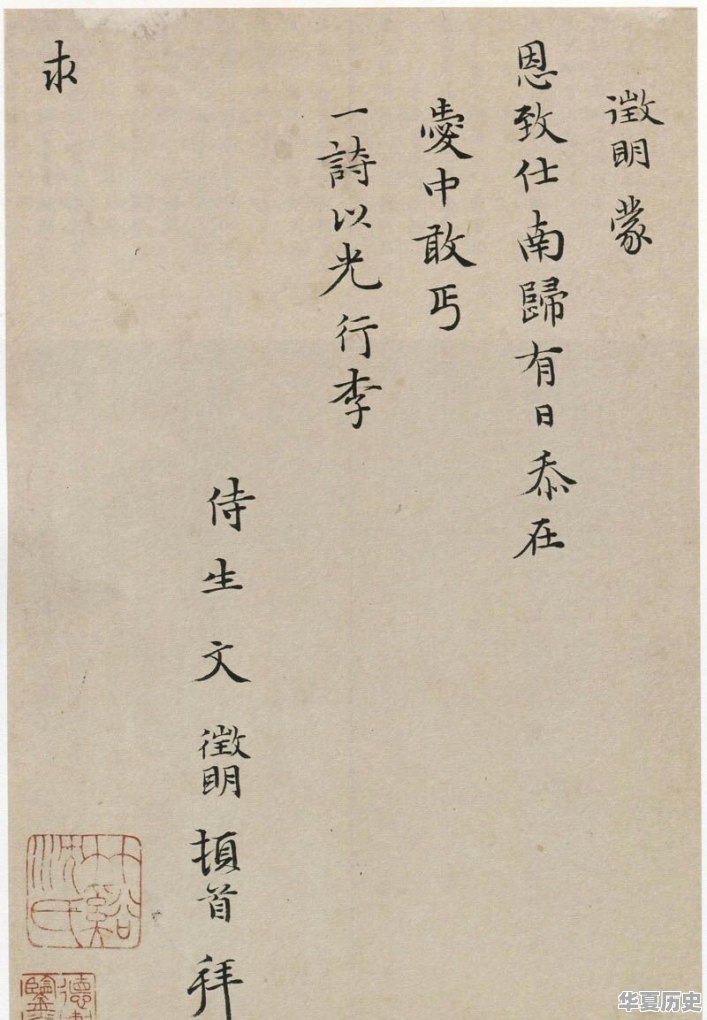 徵明蒙
恩致仕南歸有日忝在
愛中敢丐
一詩以光行李
侍生文徵明頓首拜
求
華夏历史